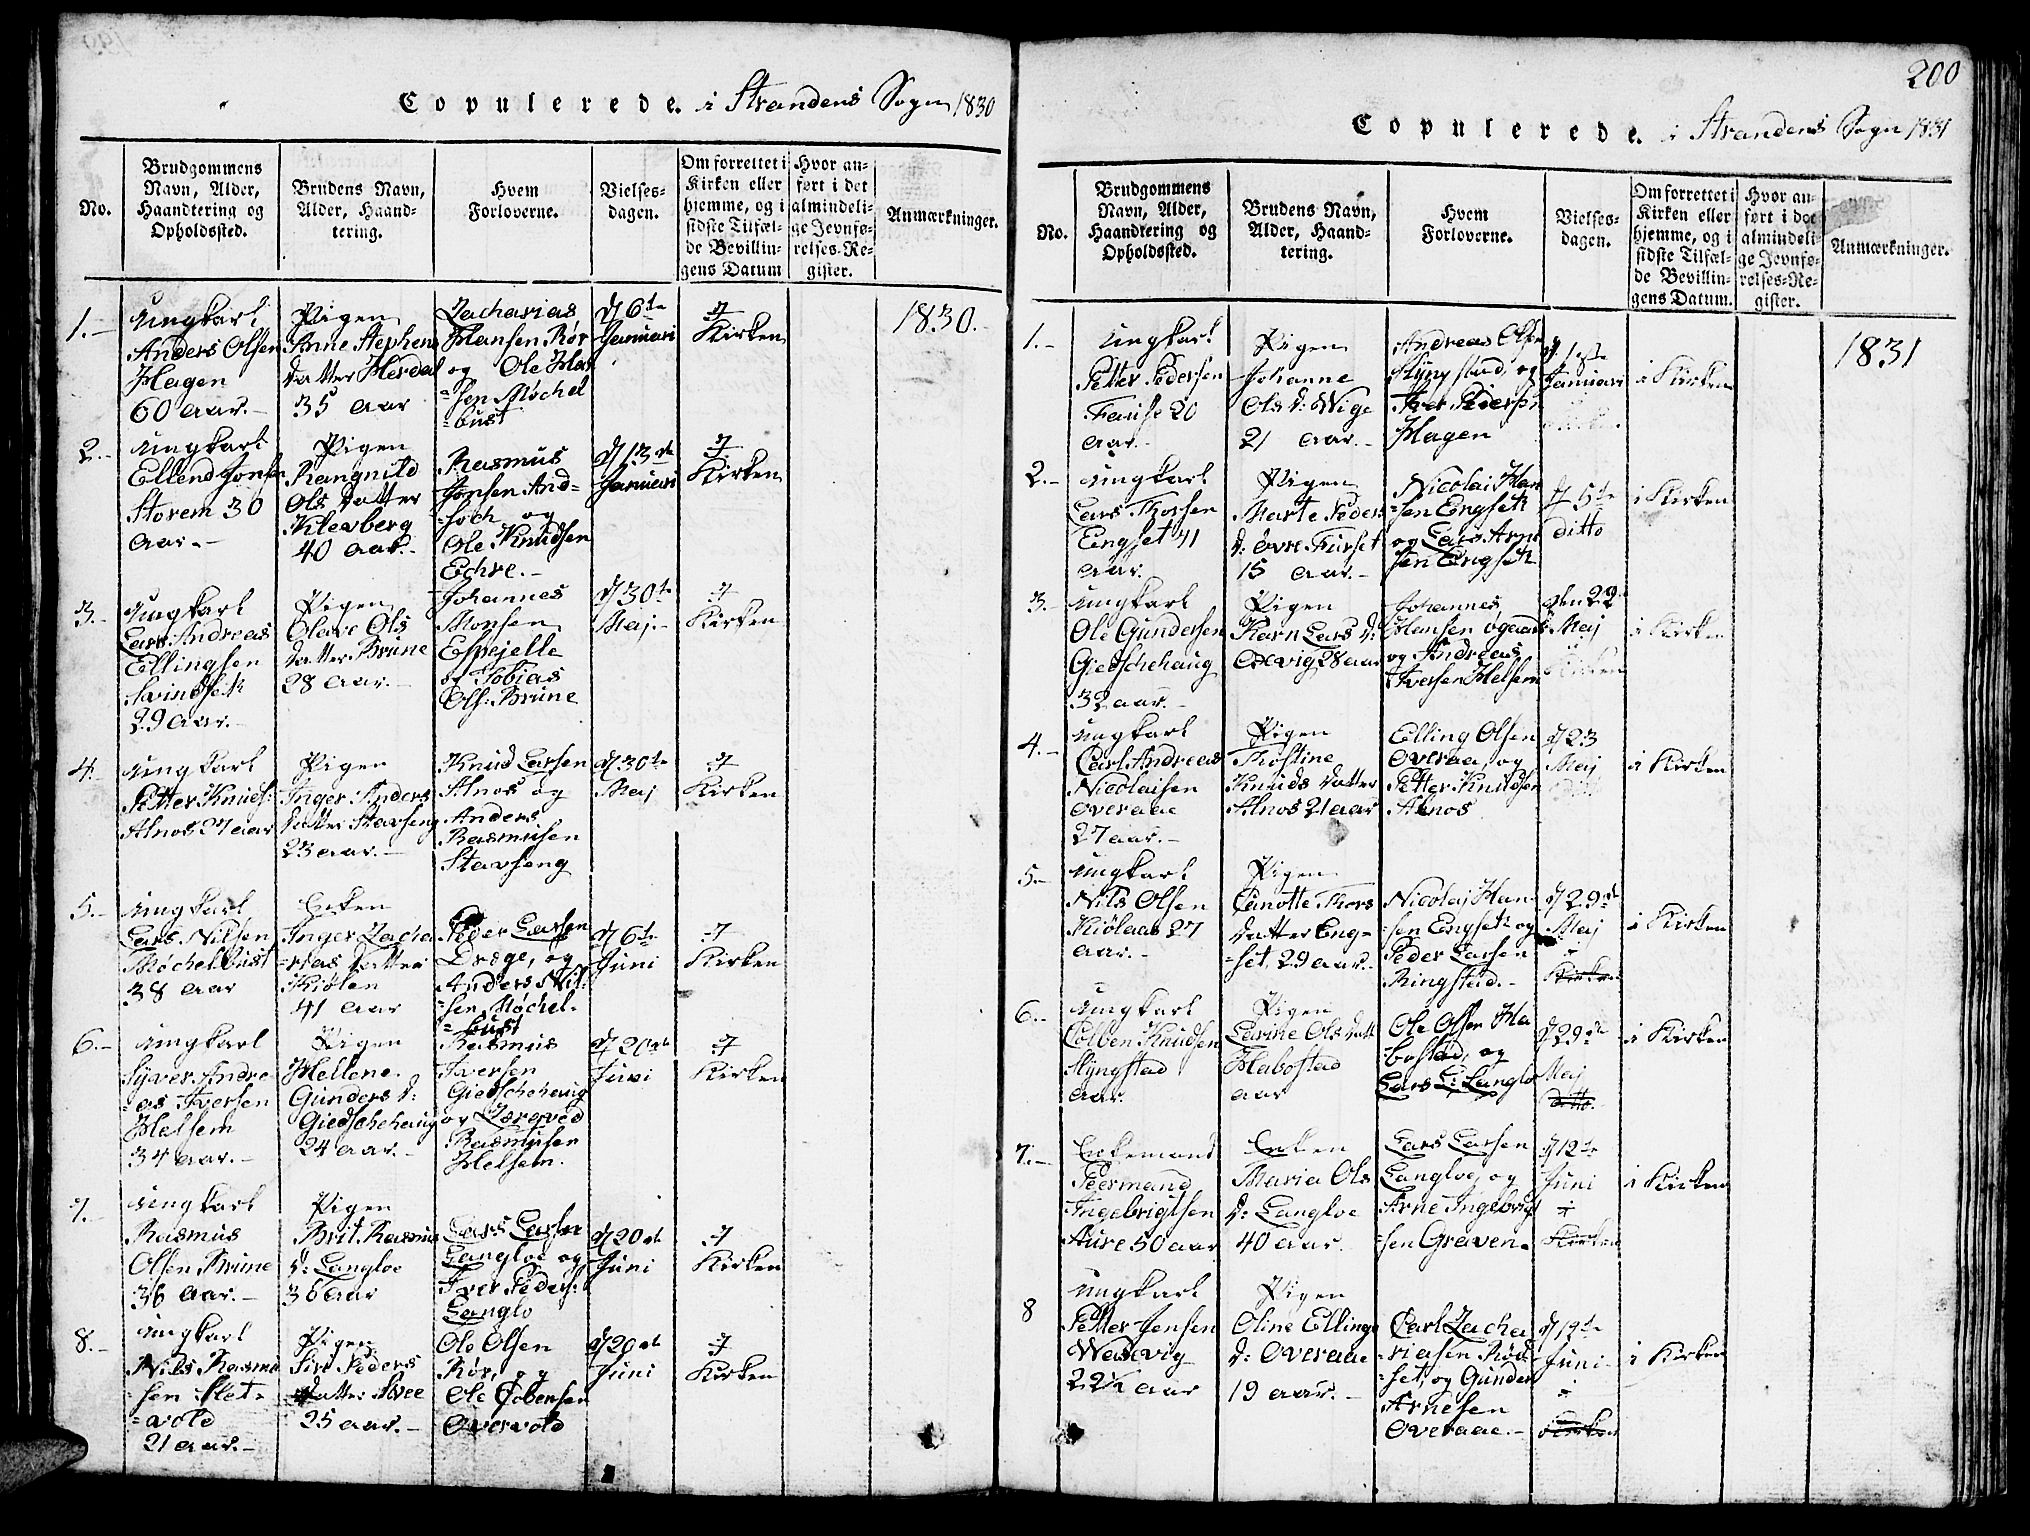 Copulerede. i Strandens Sogn 1830
No.
Brudgommens
Navn, Alder,
Haandtering og
Opholdssted.
Brudens Navn,
Alder, Haand-
tering.
Hvem
Forloverne.
Vielses-
dagen.
Om forrettet i
Kirken eller
hjemme, og i
sidste Tilfæl-
de Bevillin-
gens Datum
Hvor an-
ført i det
almindeli-
ge Jevnfø-
relses-Re-
gister.
Anmærkninger.
1830.
1.
Ungkarl
Anders Olsen
Hagen
60 aar.
Pigen
Anne Stephens
datter Herdal
35 aar
Zacharias
Hansen Rør
og Ole Han
sen Møchel
=bust
d 6te
Januari
i
Kirken
2.
Ungkarl
Ellend Jonsen
Storem 30
aar.
Pigen
Rangnild
Ols datter
Klevberg
40 aar.
Rasmus
Jonsen And=
og
Ole Knudsen
Echre.
d 13de
Januari
i
Kirken
3.
Ungkarl
Lars Andreas
Ellingsen
Svindseth
29 aar.
Pigen
Olave Ols
datter Brune
28 aar.
Johannes
Monsen
Espejelle
og Tobias
Ols: Brune
d 30te
Maj.
i
Kirken
4.
Ungkarl
Petter Knuds:
Alnos 27 aar
Pigen
Inger Anders
datter Stavseng
23 aar.
Knud Larsen
Alnos og
Anders
Rasmusen
Stavseng
d 30te
Maj
i
Kirken
5.
Ungkarl
Lars Nilsen
Møchelbust
38 aar
Enken
Inger Zacha
=rias datter
Kiölen
41 aar
Peder Larsen
Dræge, og
Anders Nil=
=sen Møchel=
=bust
d 6te
Juni
i
Kirken
6.
Ungkarl
Syver Andre
=as Iversen
Helsem
34 aar.
Pigen
Hellene
Gunders d:
Giedschehaug
24 aar.
Rasmus
Iversen
Giedschehaug
og
Rasmusen
Helsem.
d 20de
Juni
i
Kirken
7.
Ungkarl
Rasmus
Olsen Brune
36 aar.
Pigen
Brit Rasmus
d: Langloe
36 aar
Lars Larsen
Langloe og
Iver Peders:
Langlo
d 20de
Juni
i
Kirken
8.
Ungkarl
Nils Rasmu
sen Slet=
=vold
21 aar.
Pigen
Siri Peders
datter
25 aar.
Ole Olsen
Rør, og
Ole Jobensen
Overvold
d 20de
Juni
i
Kirken
200
Copulerede. i Strandens Sogn 1831
No.
Brudgommens
Navn, Alder,
Haandtering og
Opholdssted.
Brudens Navn,
Alder, Haand-
tering.
Hvem
Forloverne.
Vielses-
dagen.
Om forrettet i
Kirken eller
hjemme, og i
sidste Tilfæl-
de Bevillin-
gens Datum.
Hvor an-
ført i det
almindeli-
ge Jevnfø-
relses-Re-
gister.
Anmærkninger.
1831
1.
Ungkarl
Petter Pedersen
Fause 20
aar.
Pigen
Johanne
Ols d: Wige
21 aar.
Andreas Olsen
Slyngstad, og
Iver Pedersen
Hagen
d 1ste
Januari
i Kirken
2.
Ungkarl
Lars Thorsen
Engset 41
aar.
Pigen
Marte Peders
d: Øvre Furset
15 aar.
Nicolai Han
=sen Engseth
og Lars Arne
sen Engseth
d 5te
ditto
i Kirken
3.
Ungkarl
Ole Gundersen
Giedschehaug
32 aar.
Pigen
Karn Lars d:
28 aar
Johannes
Hansen
og Andreas
Iversen Helsem
den 22
Maj
i Kirken
4.
Ungkarl
Carl Andreas
Nicolaisen
Overaae
27 aar.
Pigen
Trostine
Knuds datter
Alnos 21 aar
Elling Olsen
Overaa, og
Petter Knudsen
Alnos
d 23
Maj
i Kirken
5.
Ungkarl
Nils Olsen
Kiölaas 27
aar.
Pigen
Canotte Thors
datter Eng=
=set, 29 aar.
Nicolaj Han
=sen Engseth og
Peder Larsen
Ringstad.
d 29de
Maj
i
Kirken
i Kirken
6.
Ungkarl
Colben Knudsen
Slyngstad
aar.
Pigen
Lavine Ols datt
Habostad
aar
Ole Olsen Ha
=bostad, og
Lars L: Langlo
d 29de
Maj
ditto.
i Kirken
7.
Enkemand
Peermand
Ingebrigtsen
Aure 50 aar
Enken
Maria Ols
d: Langloe
40 aar.
Lars Larsen
Langloe, og
Arne Ingebrigt
=sen Graven.
d 12te
Juni
i
Kirken
i Kirken
8
Ungkarl
Petter Jensen
Wedevig
22½ aar
Pigen
Oline Ellings
d: Overaae
19 aar.
Carl Zacha
=riasen Rød=
=set, og Gunder
Arnesen
Overaae.
d 12te
Juni
i
Kirken
i Kirken